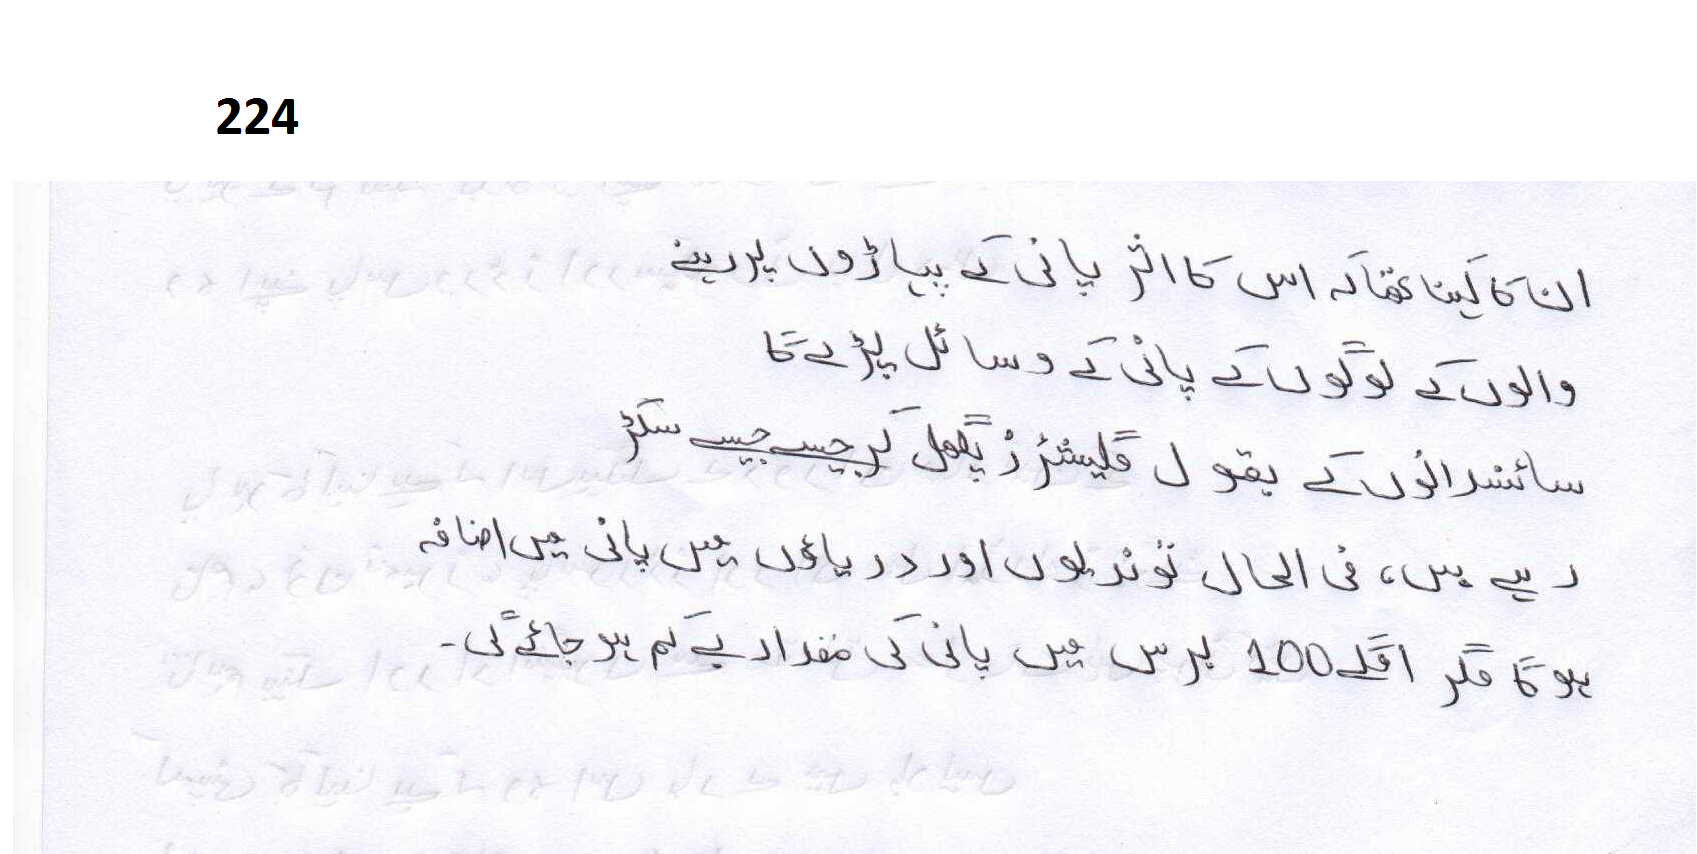 224
ان کا کہنا تھا کہ اس کا اثر پانی کے پہاڑوں پر رہنے
والوں کے لوگوں کے پانی کے وسائل پڑے گا
سائنسدانوں کے بقول گلیشئرز پگھل کر جیسے جیسے سکڑ
رہے ہیں، فی الحال تو ندیوں اور دریاؤں میں پانی میں اضافہ
ہو گا مگر اگلے 100 برس میں پانی کی مقدار بے کم ہو جائے گی۔